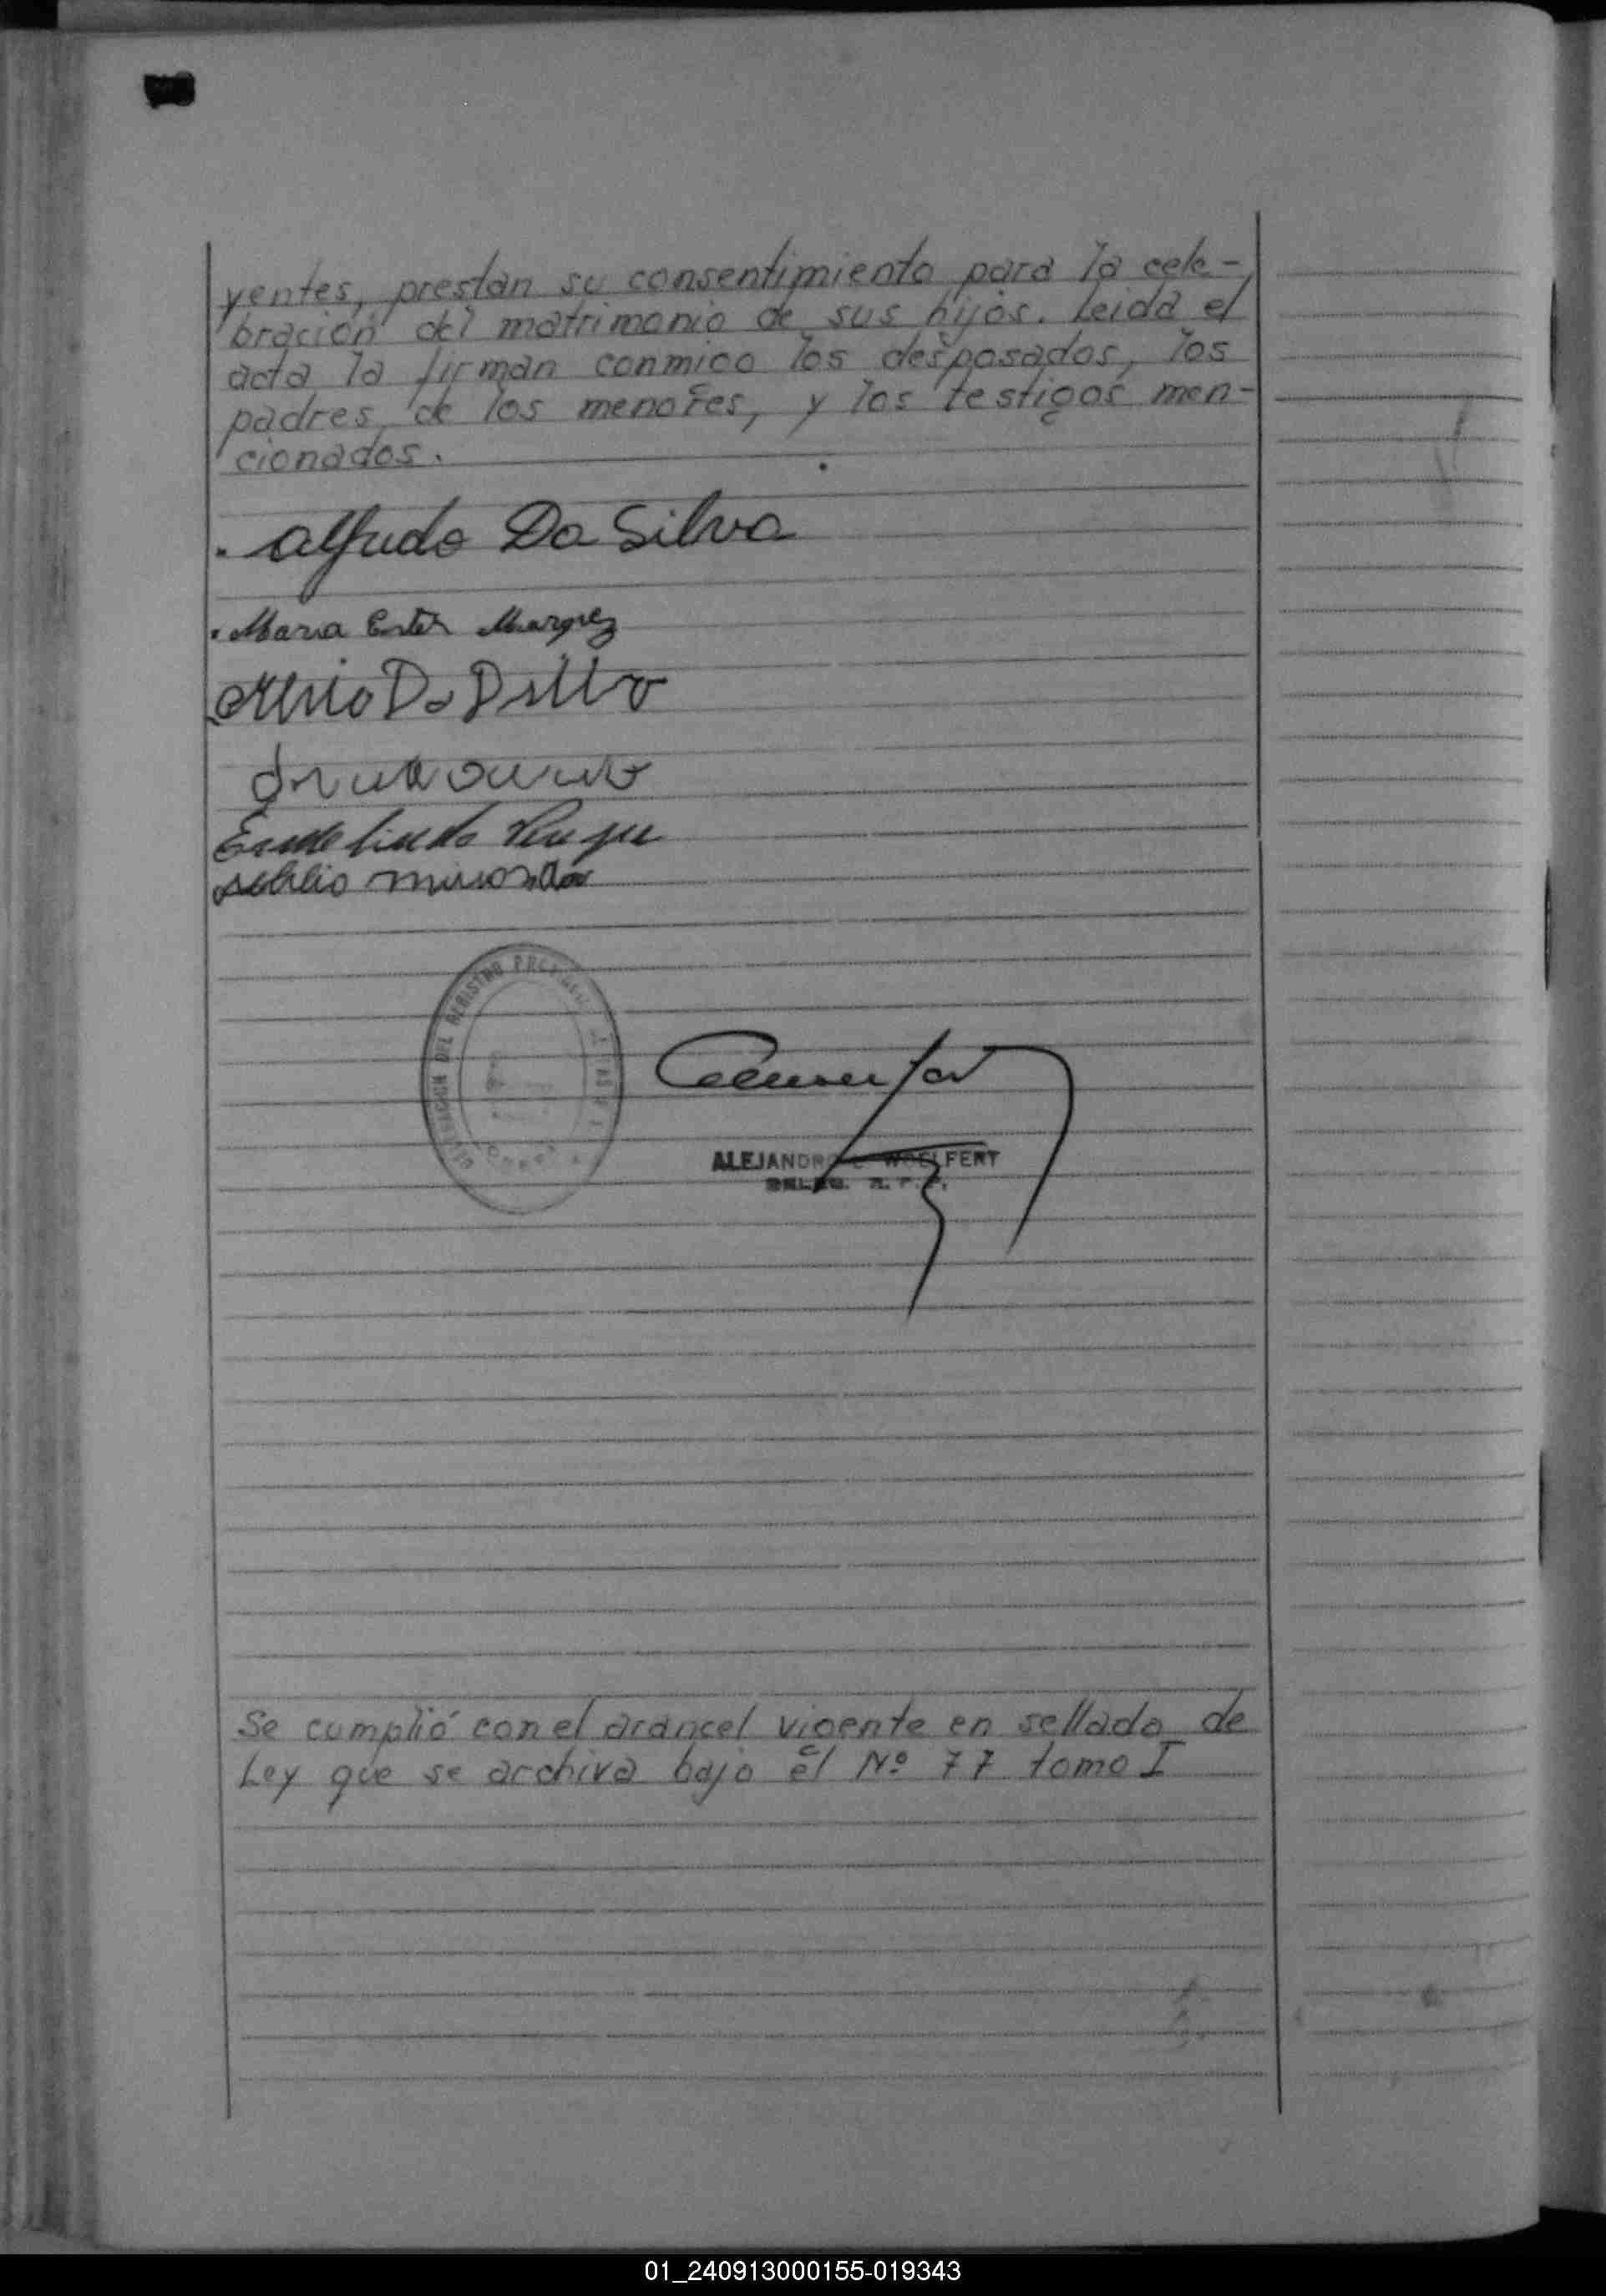 yentes, prestan su consentimiento para la cele-
bración del matrimonio de sus hijos. Leida el
acta la firman conmigo los desposados, los
padres de los menores, y los testigos men-
cionados.
Alfredo Da Silva
Maria Ester Marquez
Da Silva
Miranda
DEL REGISTRO
ALEJANDRO WOELFERT
Se cumplió con el arancel vigente en sellado de
Ley que se archiva bajo el Nº 77 tomo I
01_240913000155-019343